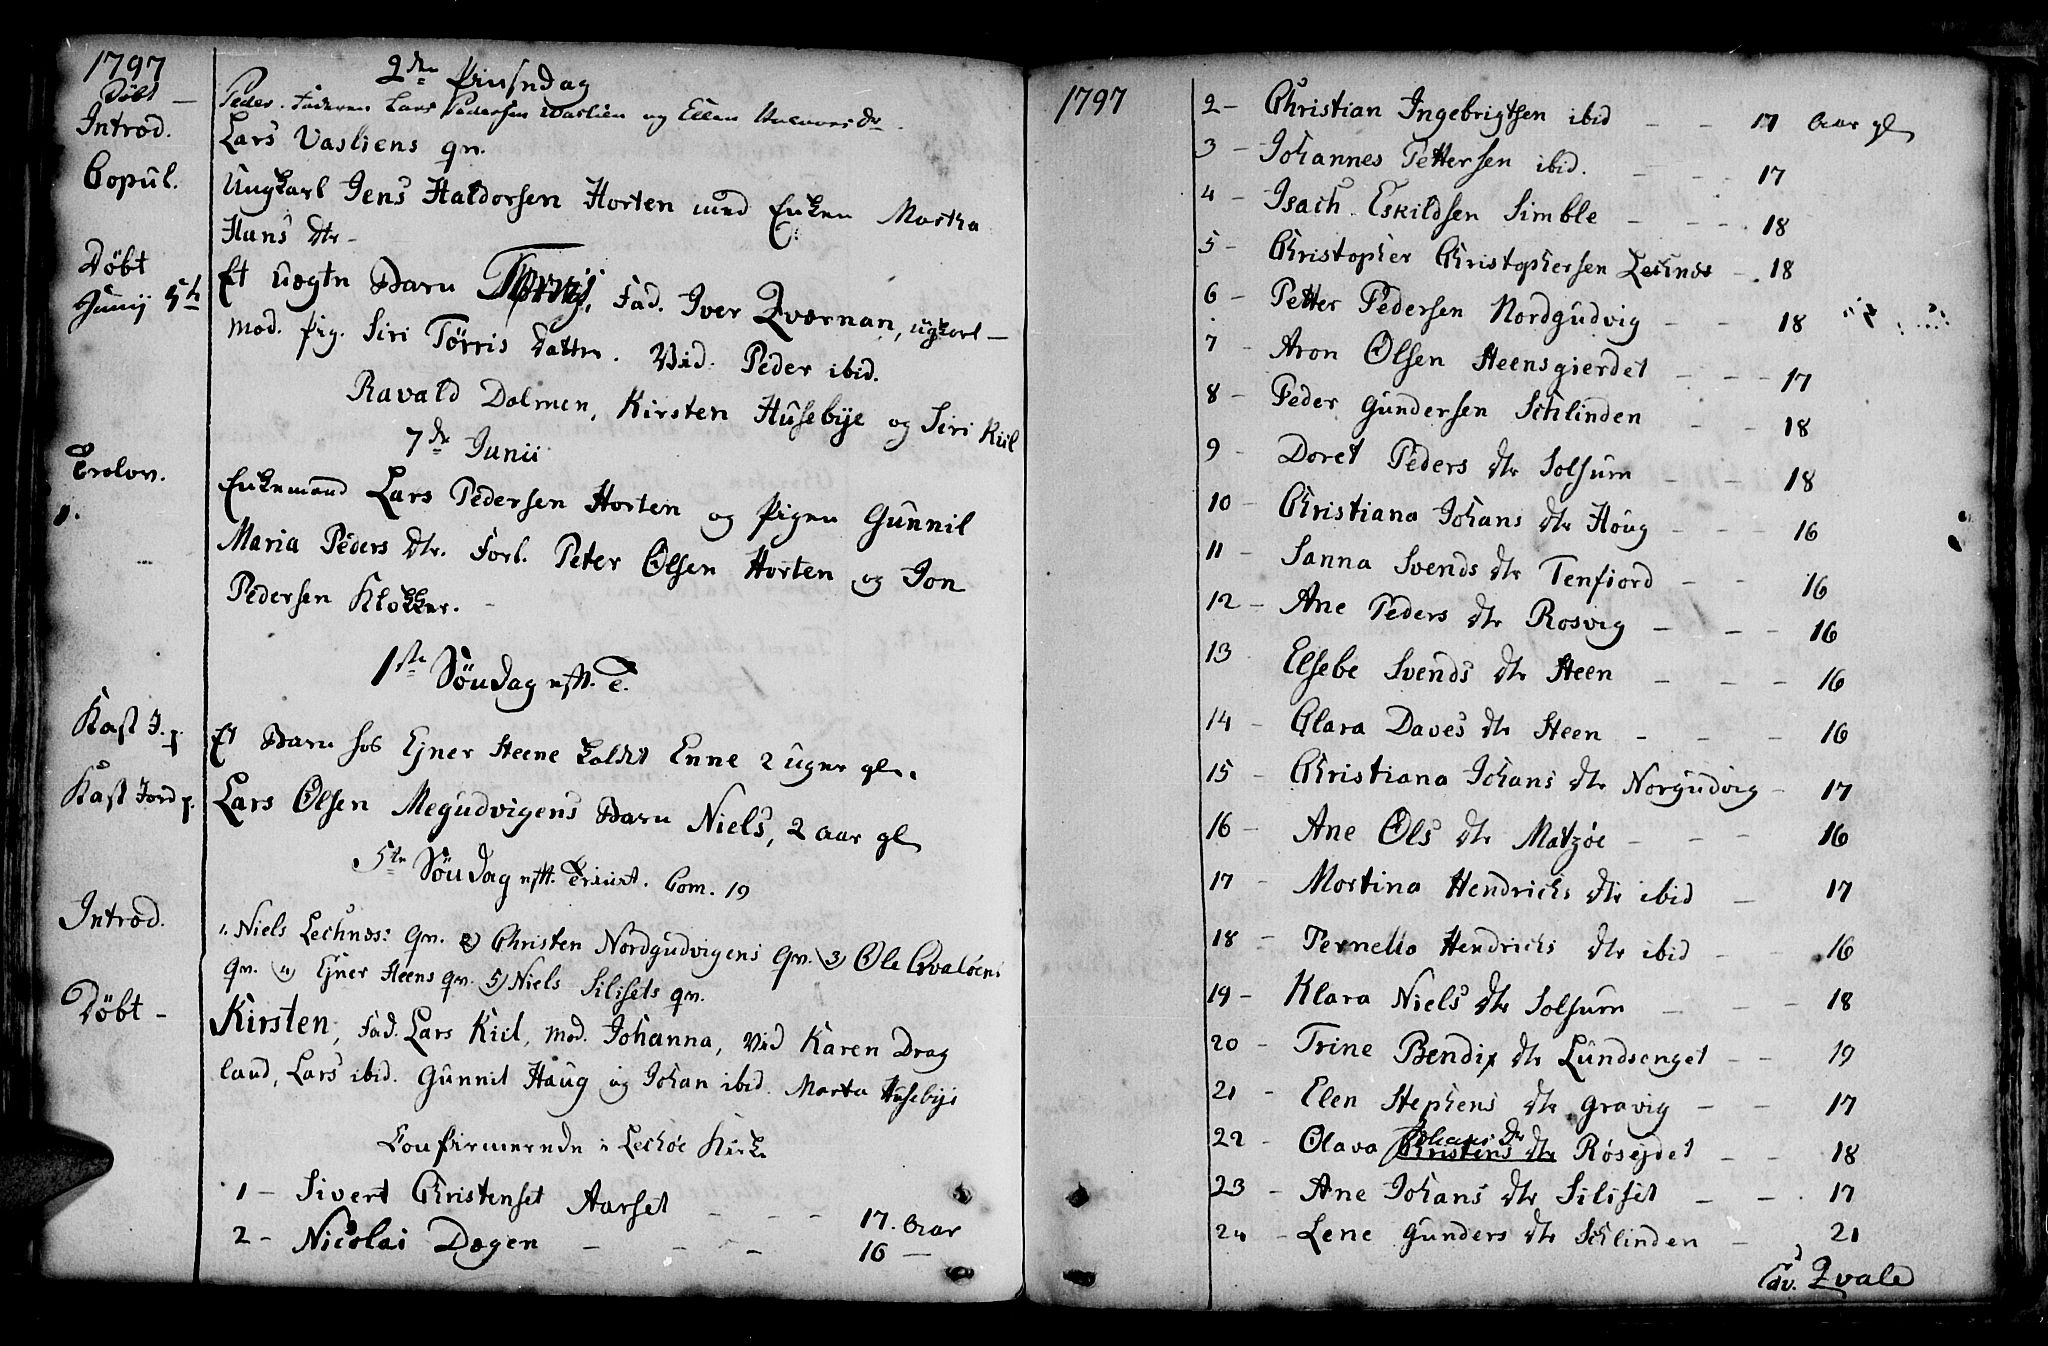 1797
2den Pinsedag
Døbt — Peder. Faderen Lars Pedersen Wasliens og Ellen
Introd. Lars Vasliens qv.
Copul. Ungkarl Jens Haldorsen Horten med Enken Martha
Hans dtr.
Døbt Et uægte Barn Tørris, Fad. Iver Qværnan, ugkarl —
Junij 5te Mod. Pig. Siri Tørris Datter. Vid. Peder ibid.
Ravald Dolmen, Kirsten Husebije og Siri Kiil
7de Junii
Trolov. Enkemand Lars Pedersen Horten og Pigen Gunnil
1. Maria Peders dtr. Forl. Peter Olsen Horten og Jon
Pedersen Klokker.
1ste Søndag eft. T.
Kast J. p. Et Barn hos Ejner Steene kaldet Enne 2 uger gl.
Kast Jord p. Lars Olsen Megudvigens Barn Niels, 2 aar gl
5te Søndag eft. Trinit. Com. 19
Introd. 1. Niels Lechnæs: qv. 2) Christen Nordgudvigens qv. 3) Ole Qvaløens
qv. 4) Ejner Steens qv. 5) Niels Silisets qv.
Døbt — Kirsten, Fad. Lars Kiil, Mod. Johanna, Vid Karen Drag
land, Lars ibid. Gunnil Haug og Johan ibid. Marta Husebije
Confirmerede i Lechøe Kirke
1 — Sivert Christenset Aarset — — — 17. Aar
2 — Nicolai Dægen — — — 16 —
1797
2 — Christian Ingebrigtsen ibid — — 17 Aar gl
3 — Johannes Pettersen ibid. — — — 17
4 — Isach Eskildsen Simble — — — 18
5 — Christopher Christophersen Lechnes — 18
6 — Petter Pedersen Nordgudvig — — 18
7 — Aron Olsen Steensgierdet — — — 17
8 — Peder Gundersen Schlinden — — 18
9 — Doret Peders dtr Solsum — — 18
10 — Christiana Johans dtr Houg — — — 16
11 — Sanna Svends dtr Tenfiord — — 16
12 — Ane Peders dtr Rosvig — — — 16
13 Elsebe Svends dtr Steen — — — 16
14 — Clara Daves dtr Steen — — — 16
15 — Christiana Johans dtr Norgudvig — 17
16 — Ane Ols dtr Matzøe — — — 16
17 — Mortina Hendrichs dtr ibid — — 17
18 — Pernello Hendrichs dtr ibid — — 16
19 — Klara Niels dtr Solsum — — 18
20 — Trine Bendix dtr Lundsenget — — 19
21 — Elen Stephens dtr Gravig — — 17
Johans Dr
22 — Olava Christens dtr Røsejdet — — 18
23 — Ane Johans dtr Siliset — — 17
24 — Lene Gunders dtr Schlinden — 21
Qvale